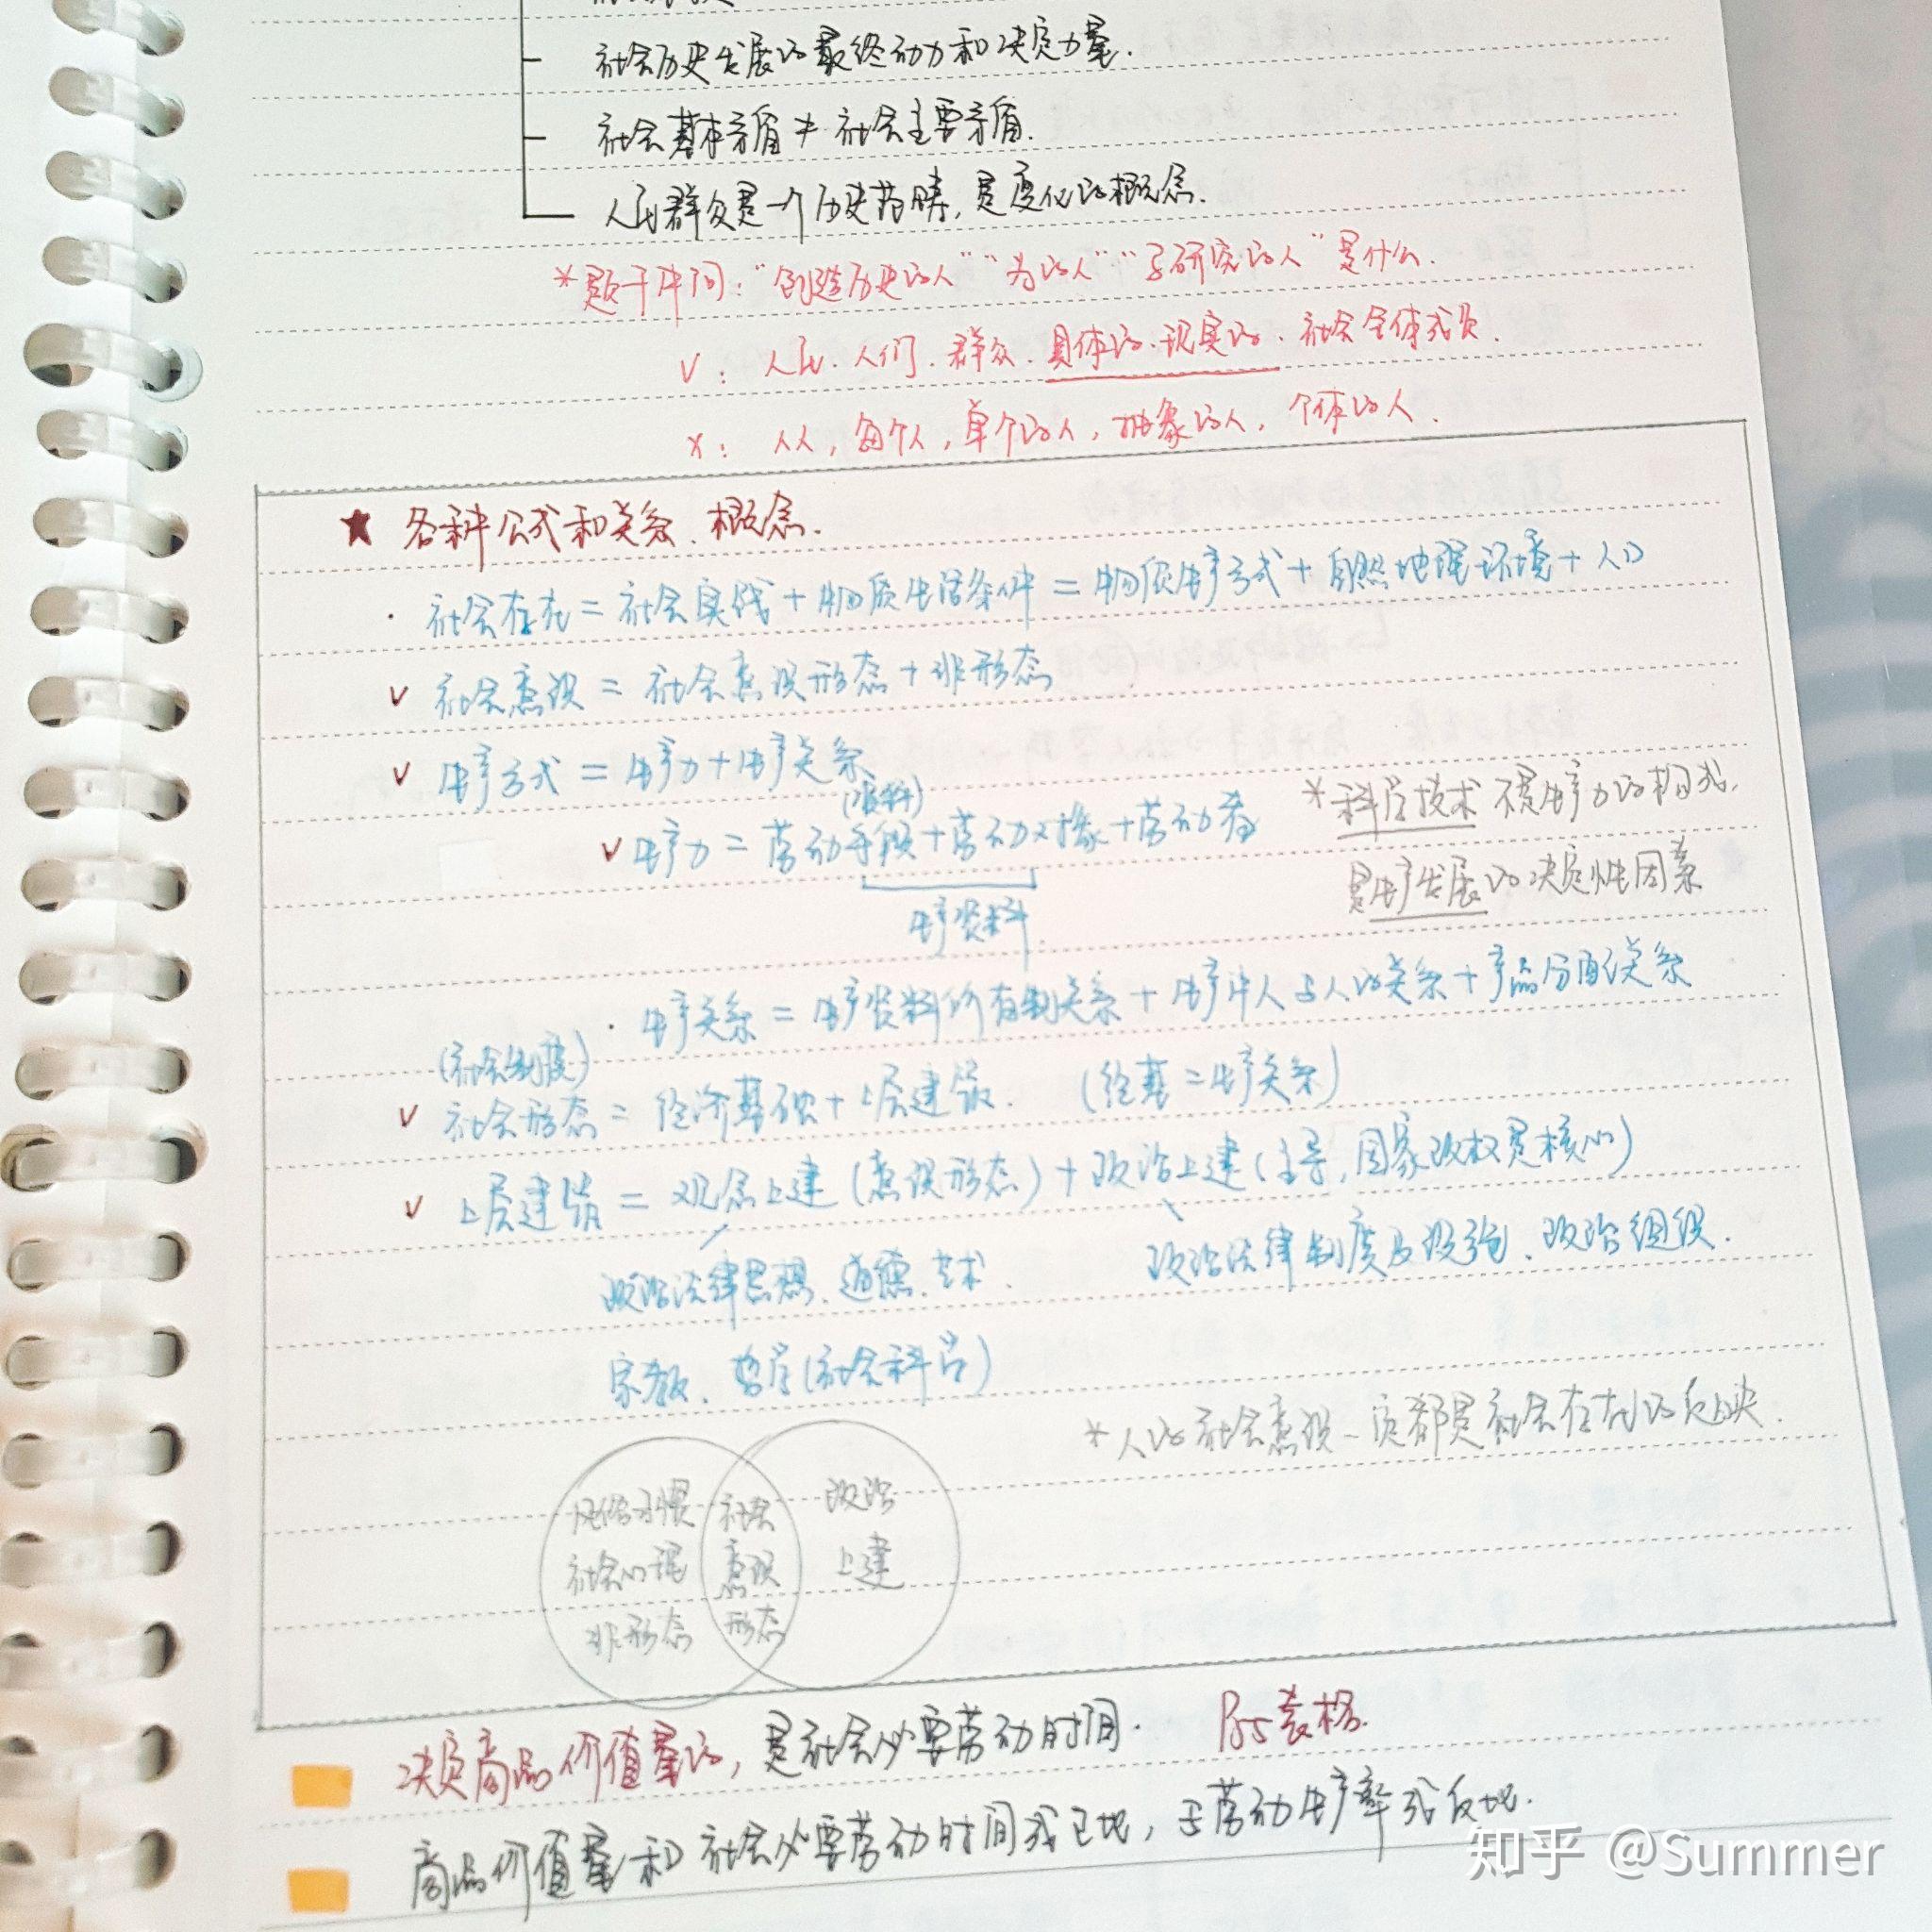 社会历史发展的最终动力和决定力量.
社会基本矛盾≠社会主要矛盾.
人民群众是一个历史范畴,是变化的概念.
*题干中问:“创造历史的人”“为的人”“与研究的人”是什么.
√: 人民.人们.群众.具体的.现实的.社会全体成员.
×: 人人,每个人,单个的人,抽象的人,个体的人.
★ 各种公式和关系、概念.
· 社会存在=社会实践+物质生活条件=物质生产方式+自然地理环境+人口
√ 社会意识=社会意识形态+非形态
√ 生产方式=生产力+生产关系
(资料)
√ 生产力=劳动手段+劳动对象+劳动者
*科学技术不是生产力的构成,
生产资料.
是生产发展的决定性因素
· 生产关系=生产资料所有制关系+生产中人与人的关系+产品分配关系
(社会制度)
√ 社会形态=经济基础+上层建筑. (经基=生产关系)
√ 上层建筑=观念上建(意识形态)+政治上建(主导,国家政权是核心)
政治法律思想、道德、艺术.
政治法律制度及设施、政治组织.
宗教、哲学(社会科学)
*人的社会意识一定都是社会存在的反映.
风俗习惯
社会心理
非形态
社会
意识
形态
政治
上建
决定商品价值量的,是社会必要劳动时间. P55表格.
商品价值量和社会必要劳动时间成正比,与劳动生产率成反比.
知乎 @Summer